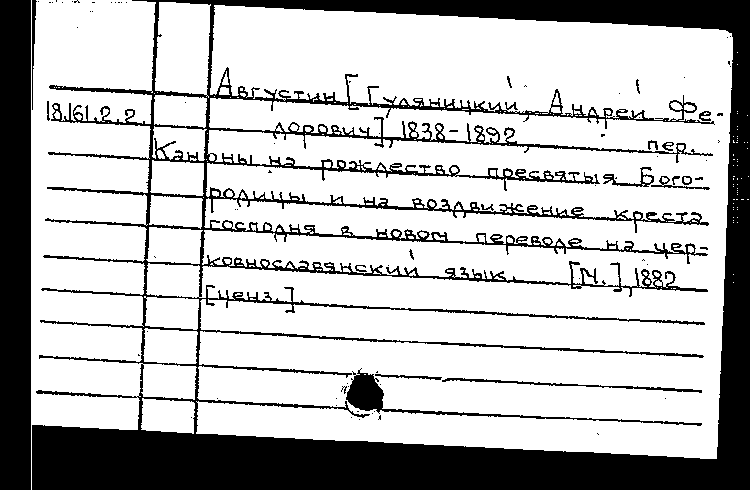 Августин [Гуляницкий, Андрей Фе-
18.161.2.2. дорович], 1838-1892, пер.
Каноны на рождество пресвятыя Бого-
родицы и на воздвижение креста
господня в новом переводе на цер-
ковнославянский язык. [М.], 1882
[ценз.].